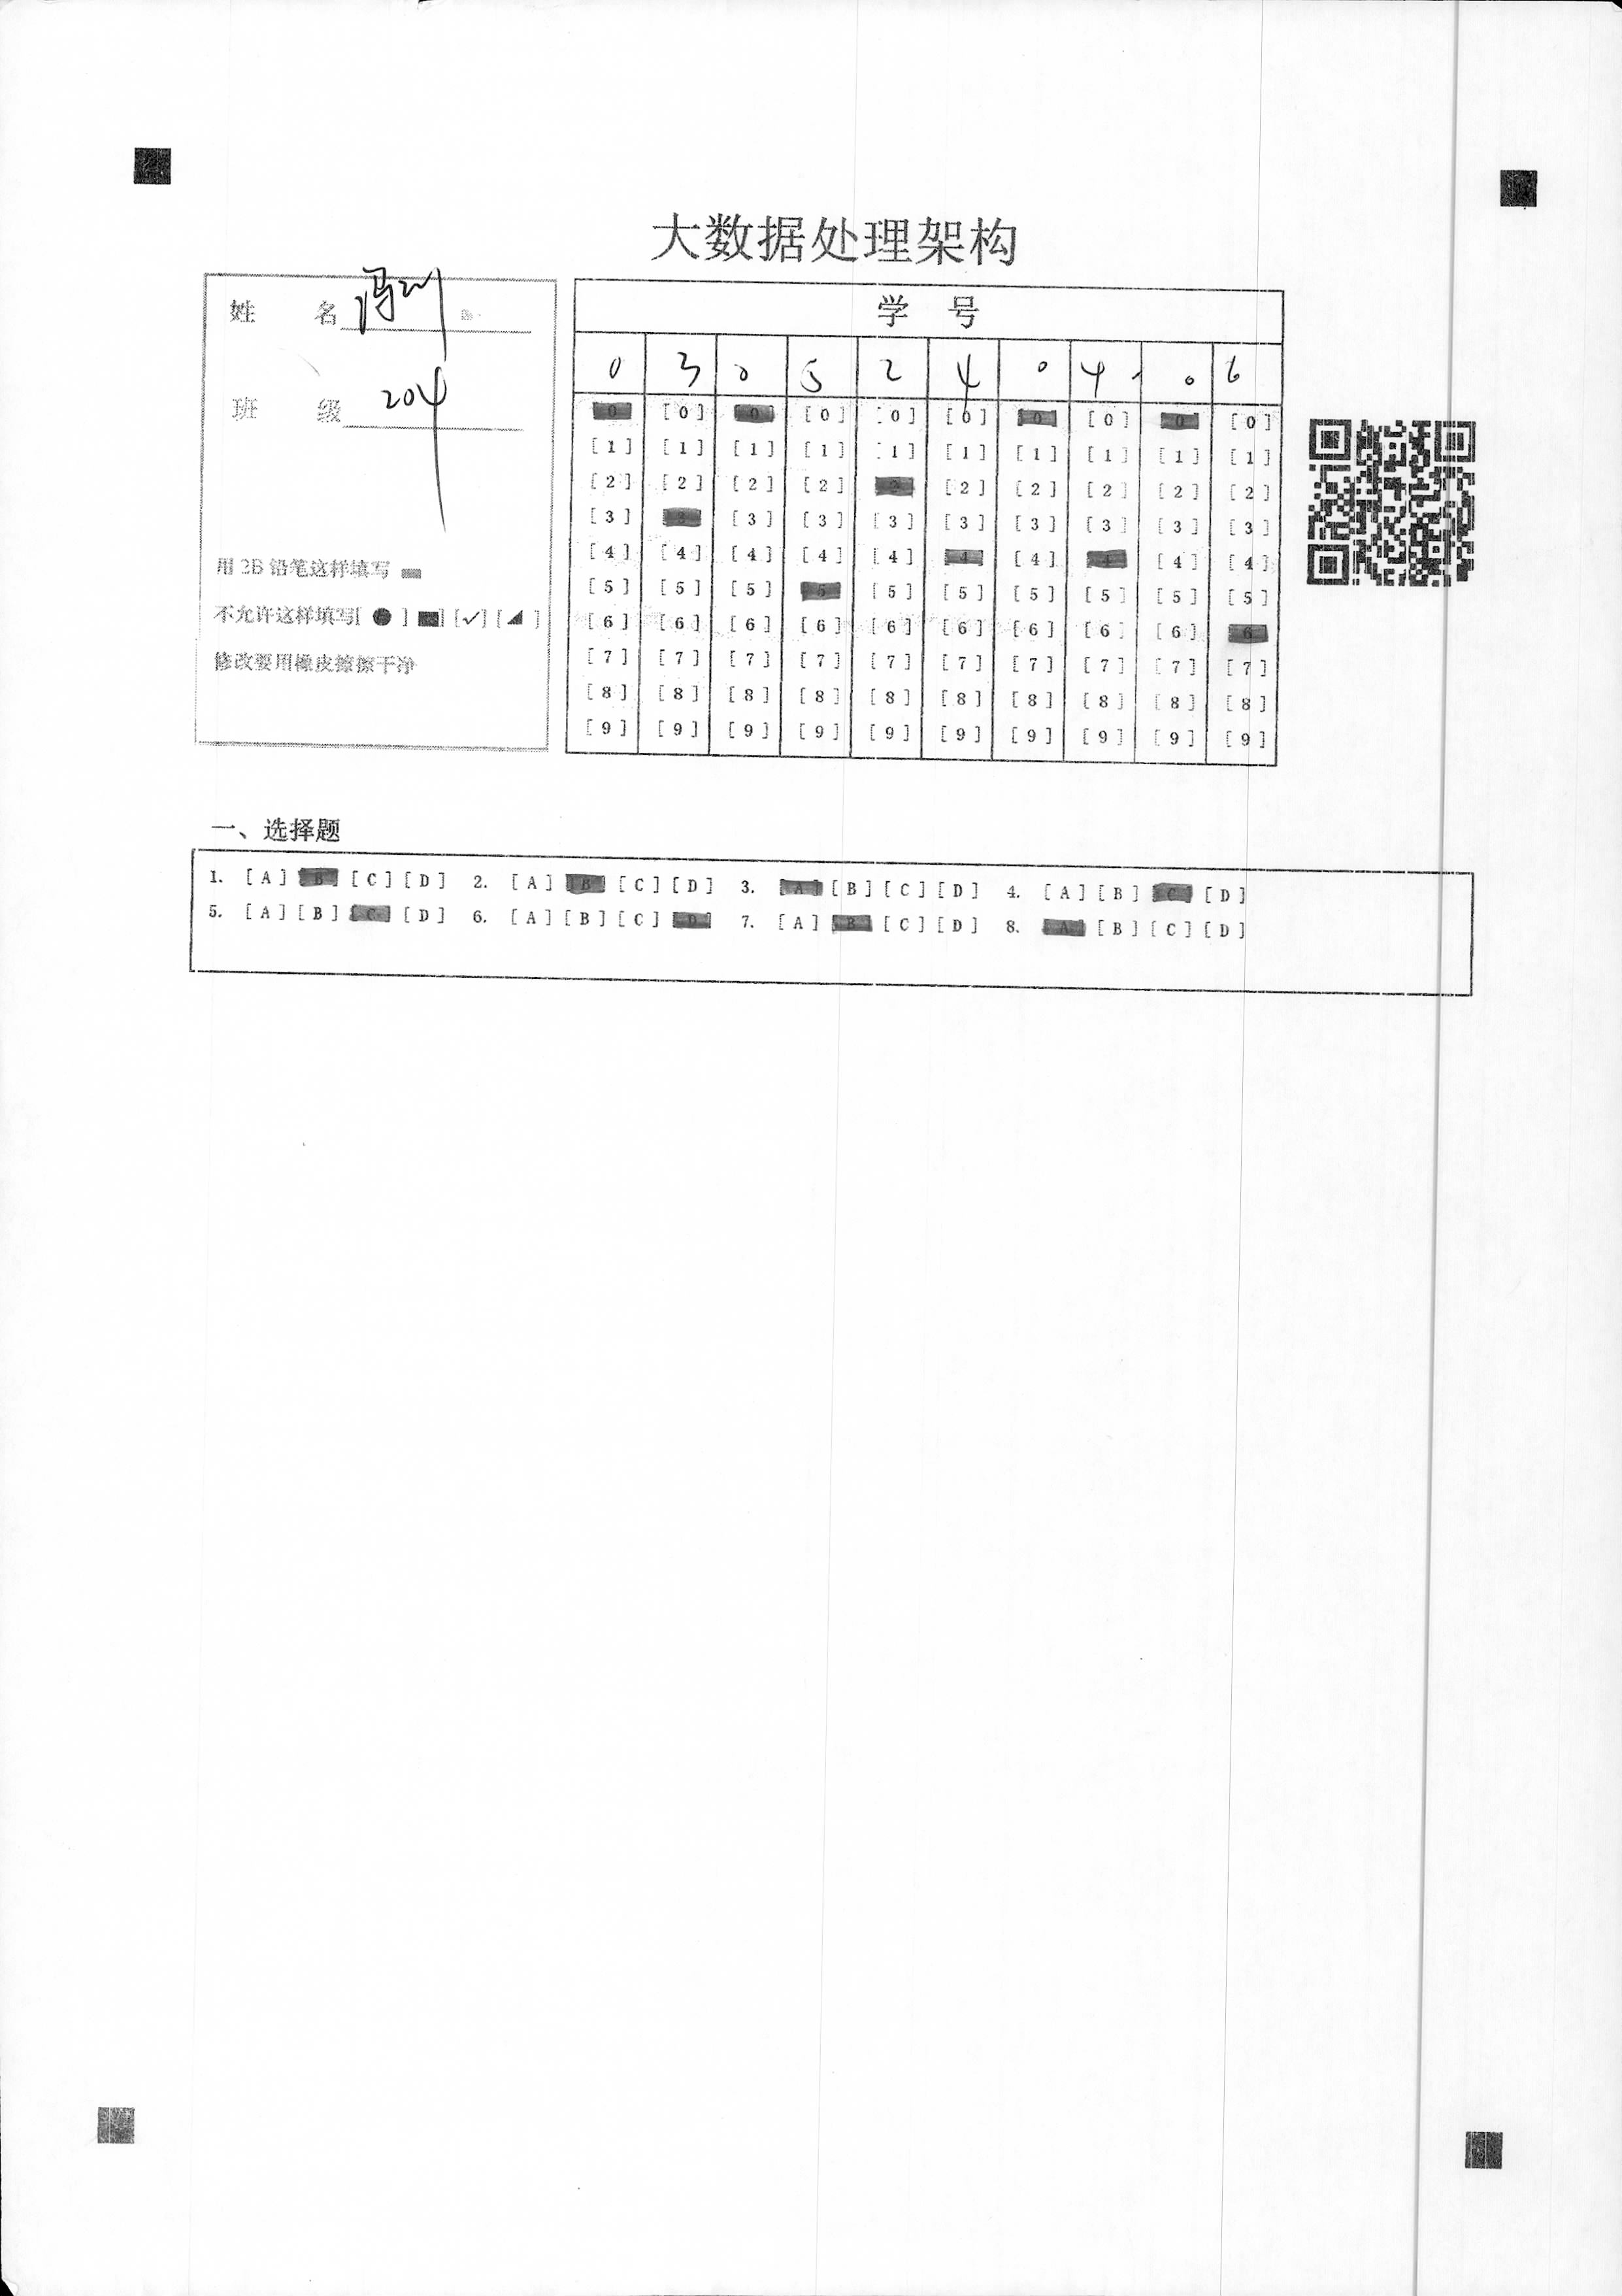 大数据处理架构
姓 名 冯
班 级 204
用 2B 铅笔这样填写
不允许这样填写[ ● ] ■] [✓] [◢ ]
修改要用橡皮擦擦干净
学 号
0 3 0 5 2 4 0 4 0 6
[0] [0] [0] [0] [0] [0] [0] [0] [0] [0]
[1] [1] [1] [1] [1] [1] [1] [1] [1] [1]
[2] [2] [2] [2] [2] [2] [2] [2] [2] [2]
[3] [3] [3] [3] [3] [3] [3] [3] [3] [3]
[4] [4] [4] [4] [4] [4] [4] [4] [4] [4]
[5] [5] [5] [5] [5] [5] [5] [5] [5] [5]
[6] [6] [6] [6] [6] [6] [6] [6] [6] [6]
[7] [7] [7] [7] [7] [7] [7] [7] [7] [7]
[8] [8] [8] [8] [8] [8] [8] [8] [8] [8]
[9] [9] [9] [9] [9] [9] [9] [9] [9] [9]
一、选择题
1. [A] [B] [C] [D] 2. [A] [B] [C] [D] 3. [A] [B] [C] [D] 4. [A] [B] [C] [D]
5. [A] [B] [C] [D] 6. [A] [B] [C] [D] 7. [A] [B] [C] [D] 8. [A] [B] [C] [D]